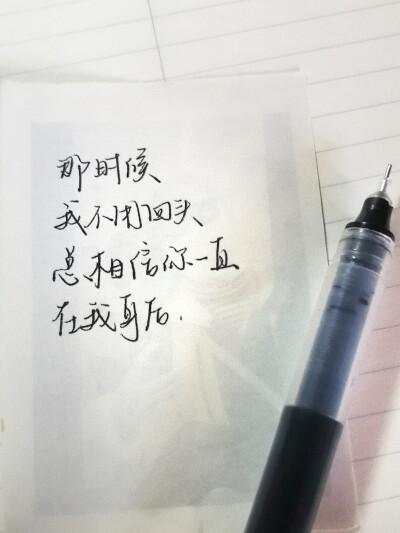 那时候
我不用回头
总相信你一直
在我身后.